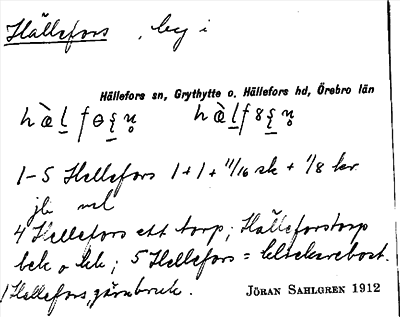 Hällefors, by i
Hällefors sn, Grythytte o. Hällefors hd, Örebro län
1-5 Hellefors 1+1+11/16 sk + 1/8 kr
jb ml
4 Hellefors ett torp; Hälleforstorp
bck o kk; 5 Hellefors = klockarebost.
1 Hellefors, järnbruk.
JÖRAN SAHLGREN 1912